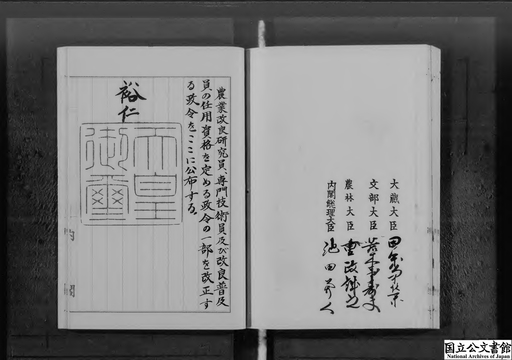 農業改良研究員、専門技術員及び改良普及
員の任用資格を定める政令の一部を改正す
る政令をここに公布する。
裕仁
天皇
御璽
大蔵大臣 田中角栄
文部大臣 荒木萬壽夫
農林大臣 重政誠之
内閣総理大臣 池田勇人
国立公文書館
National Archives of Japan